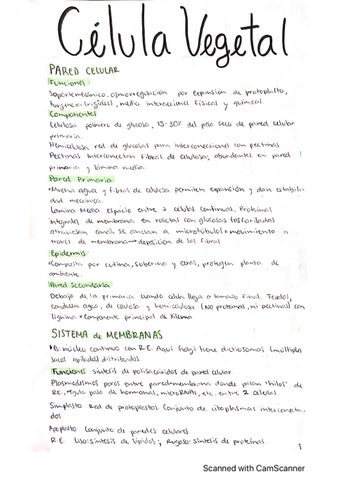 Célula Vegetal
PARED CELULAR
Funciones
Soporte mecánico, osmorregulación por expansión de protoplasto,
turgencia (rigidez), media interacciones físicas y química
Componentes
Celulosa polímero de glucosa, 15-30% del peso seco de pared celular
primaria.
Hemicelulosa red de glucosas para interconexiones con pectinas
Pectinas Interconectan fibras de celulosa, abundantes en pared
primaria y lámina media.
Pared Primaria
•Mucha agua y fibras de celulosa permiten expansión y dan estabili-
dad mecánica.
Lámina Media espacio entre 2 células continuas. Proteínas
integrales de membrana en rosetas con glucosas fosforiladas
atraviesan canal. Se anclan a microtúbulos = movimiento a
través de membrana → deposición de las fibras
Epidermis
•Compuesta por cutina, suberina y ceras, protegen planta de
ambiente.
Pared Secundaria
Debajo de la primaria cuando célula llega a tamaño final. Tejidos
conducen agua, de celulosa y hemicelulosa (No proteínas, ni pectinas) con
lignina • componente principal de Xilema
SISTEMA de MEMBRANAS
núcleo continuo con R.E. Aquí golgi tiene dictiosomas (múltiples
sacos apilados) distribuidos.
Funciones: síntesis de polisacáridos de pared celular.
Plasmodesmos poros entre pared/membrana donde pasan "hilos" de
R.E. •regula paso de hormonas, microRNAs, etc. entre 2 células
Simplasto Red de protoplastos. Conjunto de citoplasmas interconecta-
dos
Apoplasto Conjunto de paredes celulares
R.E. Liso: síntesis de lípidos; Rugoso: síntesis de proteínas.
1
Scanned with CamScanner